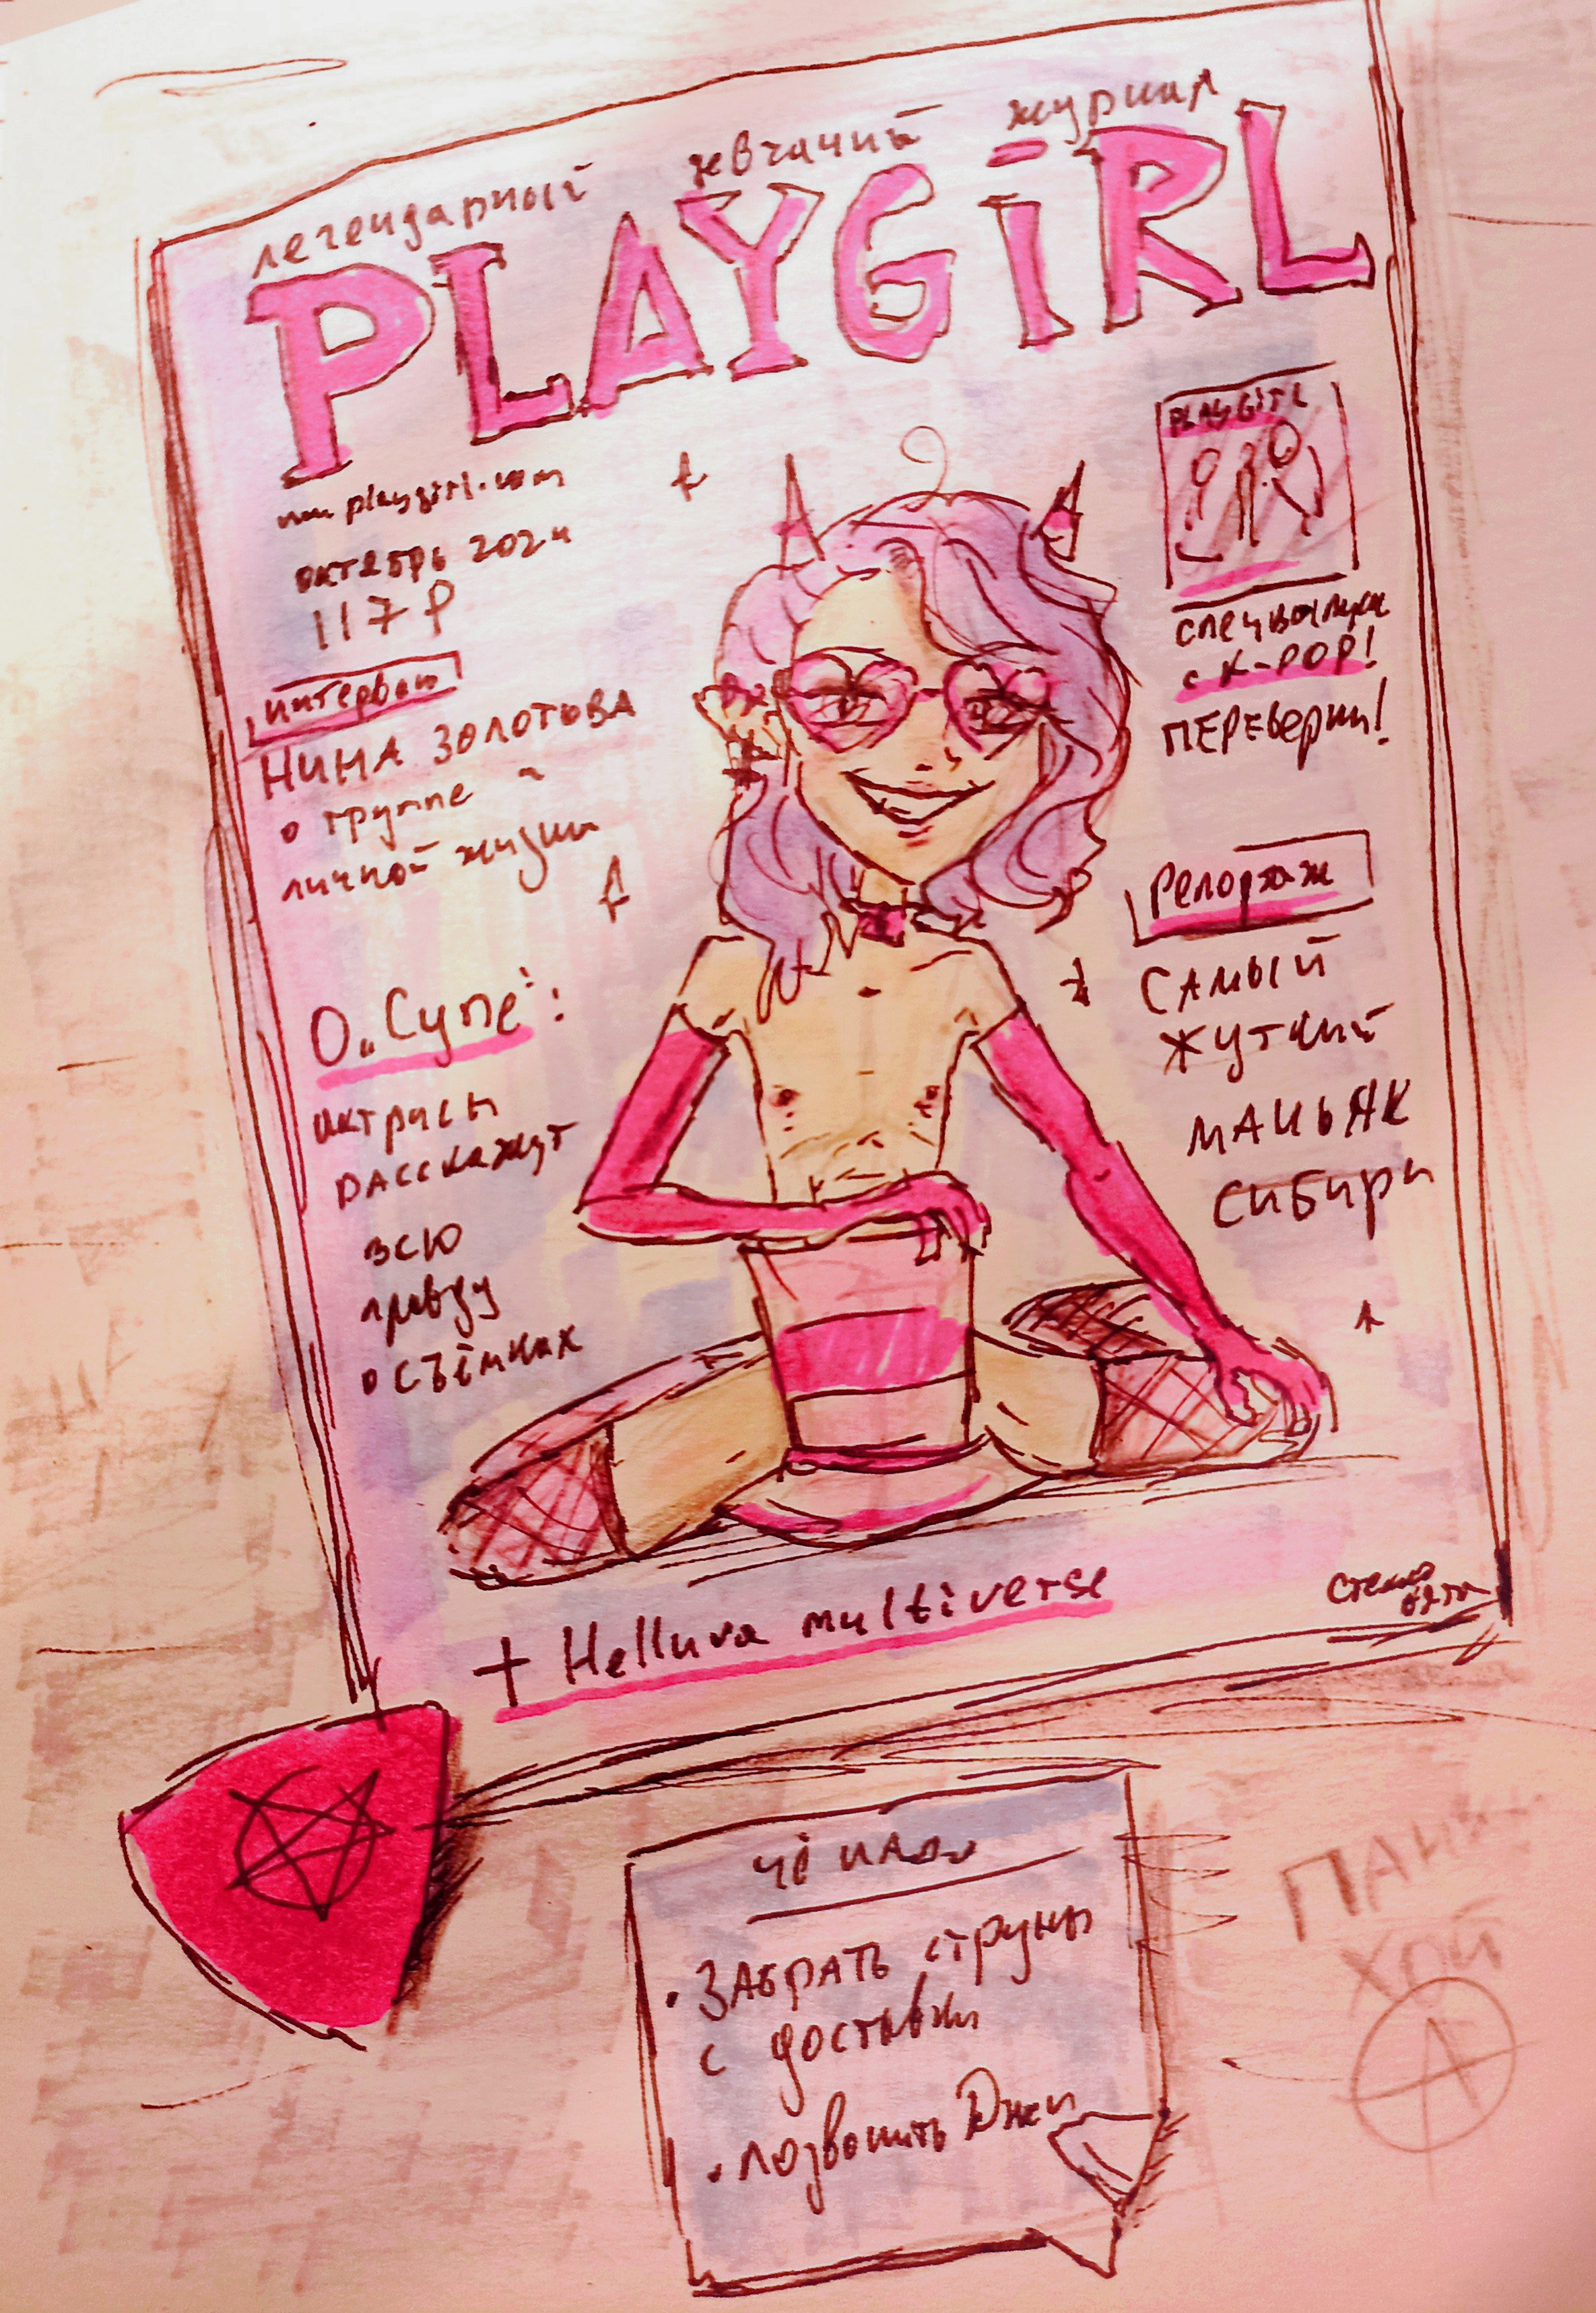 легендарный девчачий журнал
PLAYGiRL
www.playgirl.com
октябрь 2024
117 ₽
интервью
НИНА ЗОЛОТОВА
о группе и
личной жизни
О „Супе“:
актрисы
расскажут
всю
правду
о съёмках
PLAYGiRL
спецвыпуск
с K-POP!
ПЕРЕверни!
Репортаж
САМЫЙ
ЖУТКИЙ
МАНЬЯК
СИБИРИ
+ Helluva multiverse
стекло
чё надо
• ЗАБРАТЬ струны
с доставки
• позвонить Джеи
ПАНК
ХОЙ
А